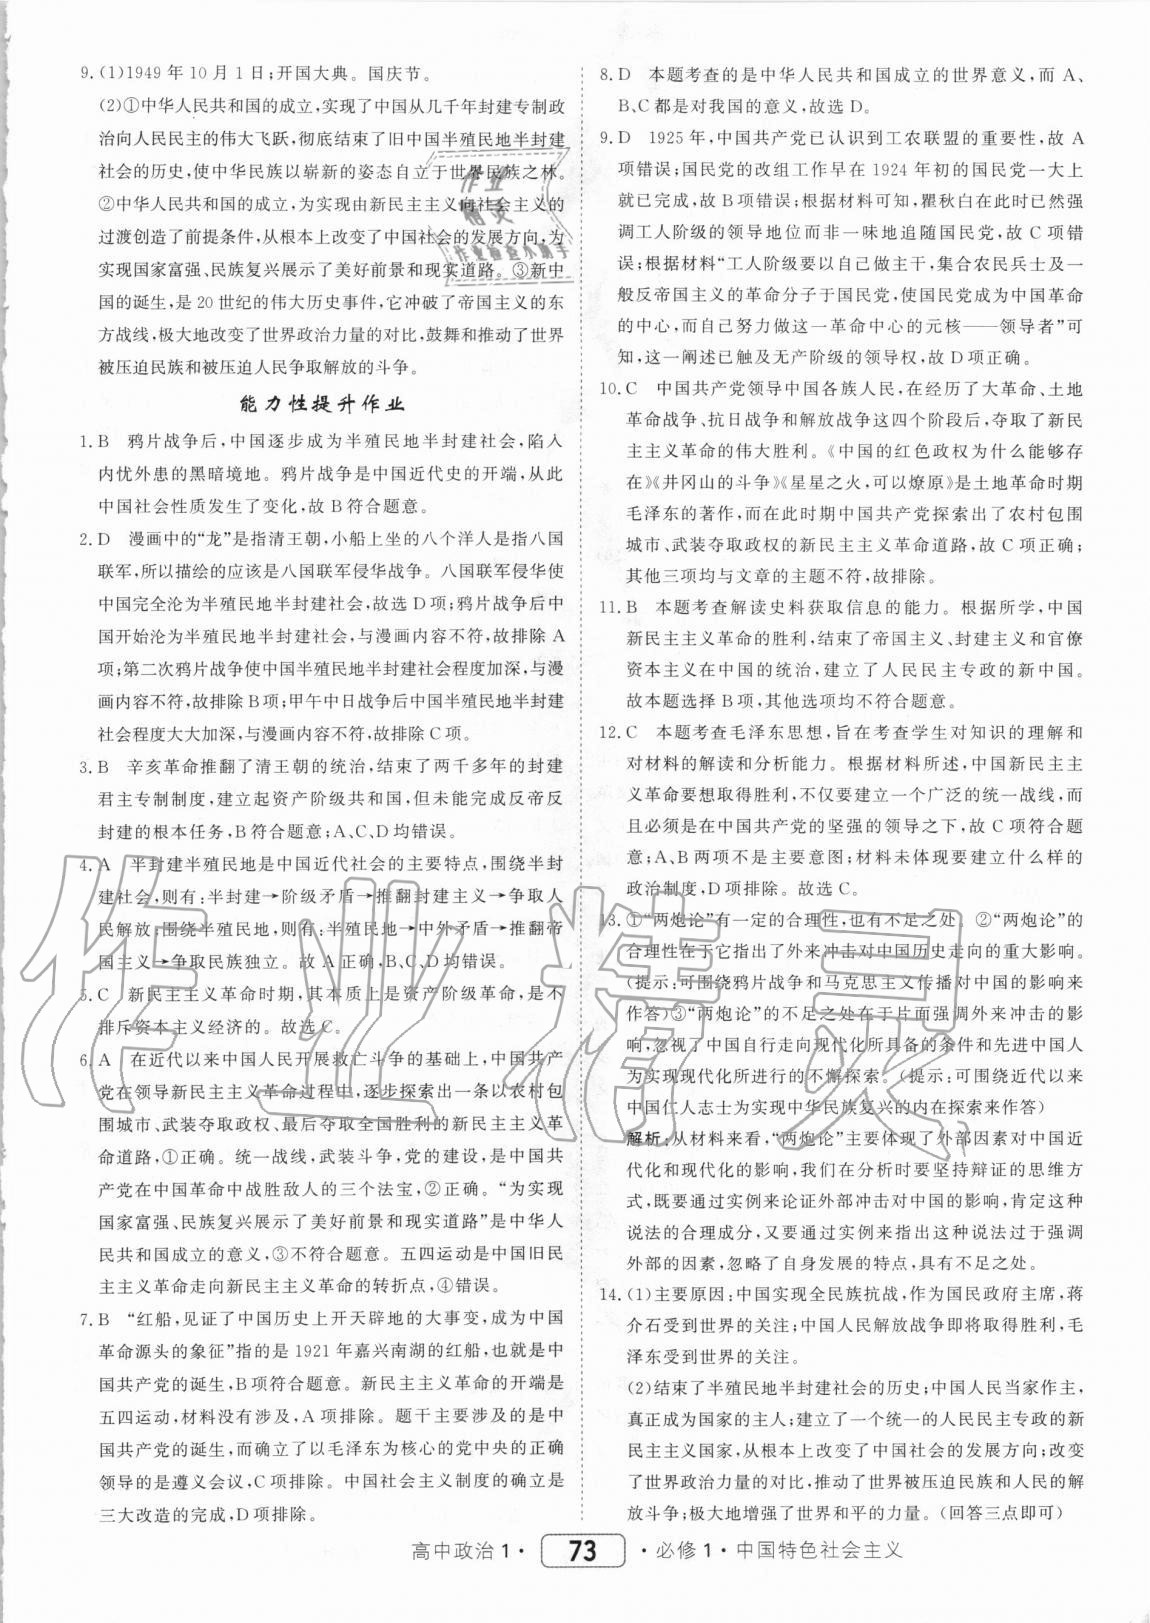 9. (1)1949 年 10 月 1 日;开国大典。国庆节。
(2)①中华人民共和国的成立,实现了中国从几千年封建专制政
治向人民民主的伟大飞跃,彻底结束了旧中国半殖民地半封建
社会的历史,使中华民族以崭新的姿态自立于世界民族之林。
②中华人民共和国的成立,为实现由新民主主义向社会主义的
过渡创造了前提条件,从根本上改变了中国社会的发展方向,为
实现国家富强、民族复兴展示了美好前景和现实道路。③新中
国的诞生,是 20 世纪的伟大历史事件,它冲破了帝国主义的东
方战线,极大地改变了世界政治力量的对比,鼓舞和推动了世界
被压迫民族和被压迫人民争取解放的斗争。
能力性提升作业
1. B 鸦片战争后,中国逐步成为半殖民地半封建社会,陷入
内忧外患的黑暗境地。鸦片战争是中国近代史的开端,从此
中国社会性质发生了变化,故 B 符合题意。
2. D 漫画中的“龙”是指清王朝,小船上坐的八个洋人是指八国
联军,所以描绘的应该是八国联军侵华战争。八国联军侵华使
中国完全沦为半殖民地半封建社会,故选 D 项;鸦片战争后中
国开始沦为半殖民地半封建社会,与漫画内容不符,故排除 A
项;第二次鸦片战争使中国半殖民地半封建社会程度加深,与漫
画内容不符,故排除 B 项;甲午中日战争后中国半殖民地半封建
社会程度大大加深,与漫画内容不符,故排除 C 项。
3. B 辛亥革命推翻了清王朝的统治,结束了两千多年的封建
君主专制制度,建立起资产阶级共和国,但未能完成反帝反
封建的根本任务,B 符合题意;A、C、D 均错误。
4. A 半封建半殖民地是中国近代社会的主要特点,围绕半封
建社会,则有:半封建→阶级矛盾→推翻封建主义→争取人
民解放;围绕半殖民地,则有:半殖民地→中外矛盾→推翻帝
国主义→争取民族独立。故 A 正确,B、C、D 均错误。
5. C 新民主主义革命时期,其本质上是资产阶级革命,是不
排斥资本主义经济的。故选 C。
6. A 在近代以来中国人民开展救亡斗争的基础上,中国共产
党在领导新民主主义革命过程中,逐步探索出一条以农村包
围城市、武装夺取政权、最后夺取全国胜利的新民主主义革
命道路,①正确。统一战线,武装斗争,党的建设,是中国共
产党在中国革命中战胜敌人的三个法宝,②正确。“为实现
国家富强、民族复兴展示了美好前景和现实道路”是中华人
民共和国成立的意义,③不符合题意。五四运动是中国旧民
主主义革命走向新民主主义革命的转折点,④错误。
7. B “红船,见证了中国历史上开天辟地的大事变,成为中国
革命源头的象征”指的是 1921 年嘉兴南湖的红船,所以是
中国共产党的诞生,B 项符合题意。新民主主义革命的开端是
五四运动,材料没有涉及,A 项排除。题干主要强调的是中
国共产党的诞生,而确立了以毛泽东为核心的党中央的正确
领导的是遵义会议,C 项排除。中国社会主义制度的确立是
三大改造的完成,D 项排除。
8. D 本题考查的是中华人民共和国成立的世界意义,而 A、
B、C 都是对我国的意义,故选 D。
9. D 1925 年,中国共产党已认识到工农联盟的重要性,故 A
项错误;国民党的改组工作早在 1924 年初的国民党一大上
就已完成,故 B 项错误;根据材料可知,瞿秋白在此已然强
调工人阶级的领导地位而非一味地追随国民党,故 C 项错
误;根据材料“工人阶级要以自己做主干,集合农民兵士及一
般反帝国主义的革命分子于国民党,使国民党成为中国革命
的中心,而自己努力做这一革命中心的元核——领导者”可
知,这一阐述已触及无产阶级的领导权,故 D 项正确。
10. C 中国共产党领导中国各族人民,在经历了大革命、土地
革命战争、抗日战争和解放战争这四个阶段后,夺取了新民
主主义革命的伟大胜利。《中国的红色政权为什么能够存
在》《井冈山的斗争》《星星之火,可以燎原》是土地革命时期
毛泽东的著作,而在此时期中国共产党探索出了农村包围
城市、武装夺取政权的新民主主义革命道路,故 C 项正确;
其他三项均与文章的主题不符,故排除。
11. B 本题考查解读史料获取信息的能力。根据所学,中国
新民主主义革命的胜利,结束了帝国主义、封建主义和官僚
资本主义在中国的统治,建立了人民民主专政的新中国。
故本题选择 B 项,其他选项均不符合题意。
12. C 本题考查毛泽东思想,旨在考查学生对知识的理解和
对材料的解读和分析能力。根据材料所述,中国新民主主
义革命要想取得胜利,不仅要建立一个广泛的统一战线,而
且必须是在中国共产党的坚强的领导之下,故 C 项符合题
意;A、B 两项不是主要意图;材料未体现要建立什么样的
政治制度,D 项排除。故选 C。
13. ①“两炮论”有一定的合理性,也有不足之处。②“两炮论”的
合理性在于它指出了外来冲击对中国历史走向的重大影响。
(提示:可围绕鸦片战争和马克思主义传播对中国的影响来
作答)③“两炮论”的不足之处在于片面强调外来冲击的影
响,忽视了中国自行走向现代化所具备的条件和先进中国人
为实现现代化所进行的不懈探索。(提示:可围绕近代以来
中国仁人志士为实现中华民族复兴的内在探索来作答)
解析:从材料来看,“两炮论”主要体现了外部因素对中国近
代化和现代化的影响,我们在分析时要坚持辩证的思维方
式,既要通过实例来论证外部冲击对中国的影响,肯定这种
说法的合理成分,又要通过实例来指出这种说法过于强调
外部的因素,忽略了自身发展的特点,具有不足之处。
14. (1)主要原因:中国实现全民族抗战,作为国民政府主席,蒋
介石受到世界的关注;中国人民解放战争即将取得胜利,毛
泽东受到世界的关注。
(2)结束了半殖民地半封建社会的历史;中国人民当家作主,
真正成为国家的主人;建立了一个统一的人民民主专政的新
民主主义国家,从根本上改变了中国社会的发展方向;改变
了世界政治力量的对比,推动了世界被压迫民族和人民的解
放斗争;极大地增强了世界和平的力量。(回答三点即可)
高中政治 1 · 73 · 必修 1 · 中国特色社会主义
作业精灵
作业
精灵
作业检查小助手